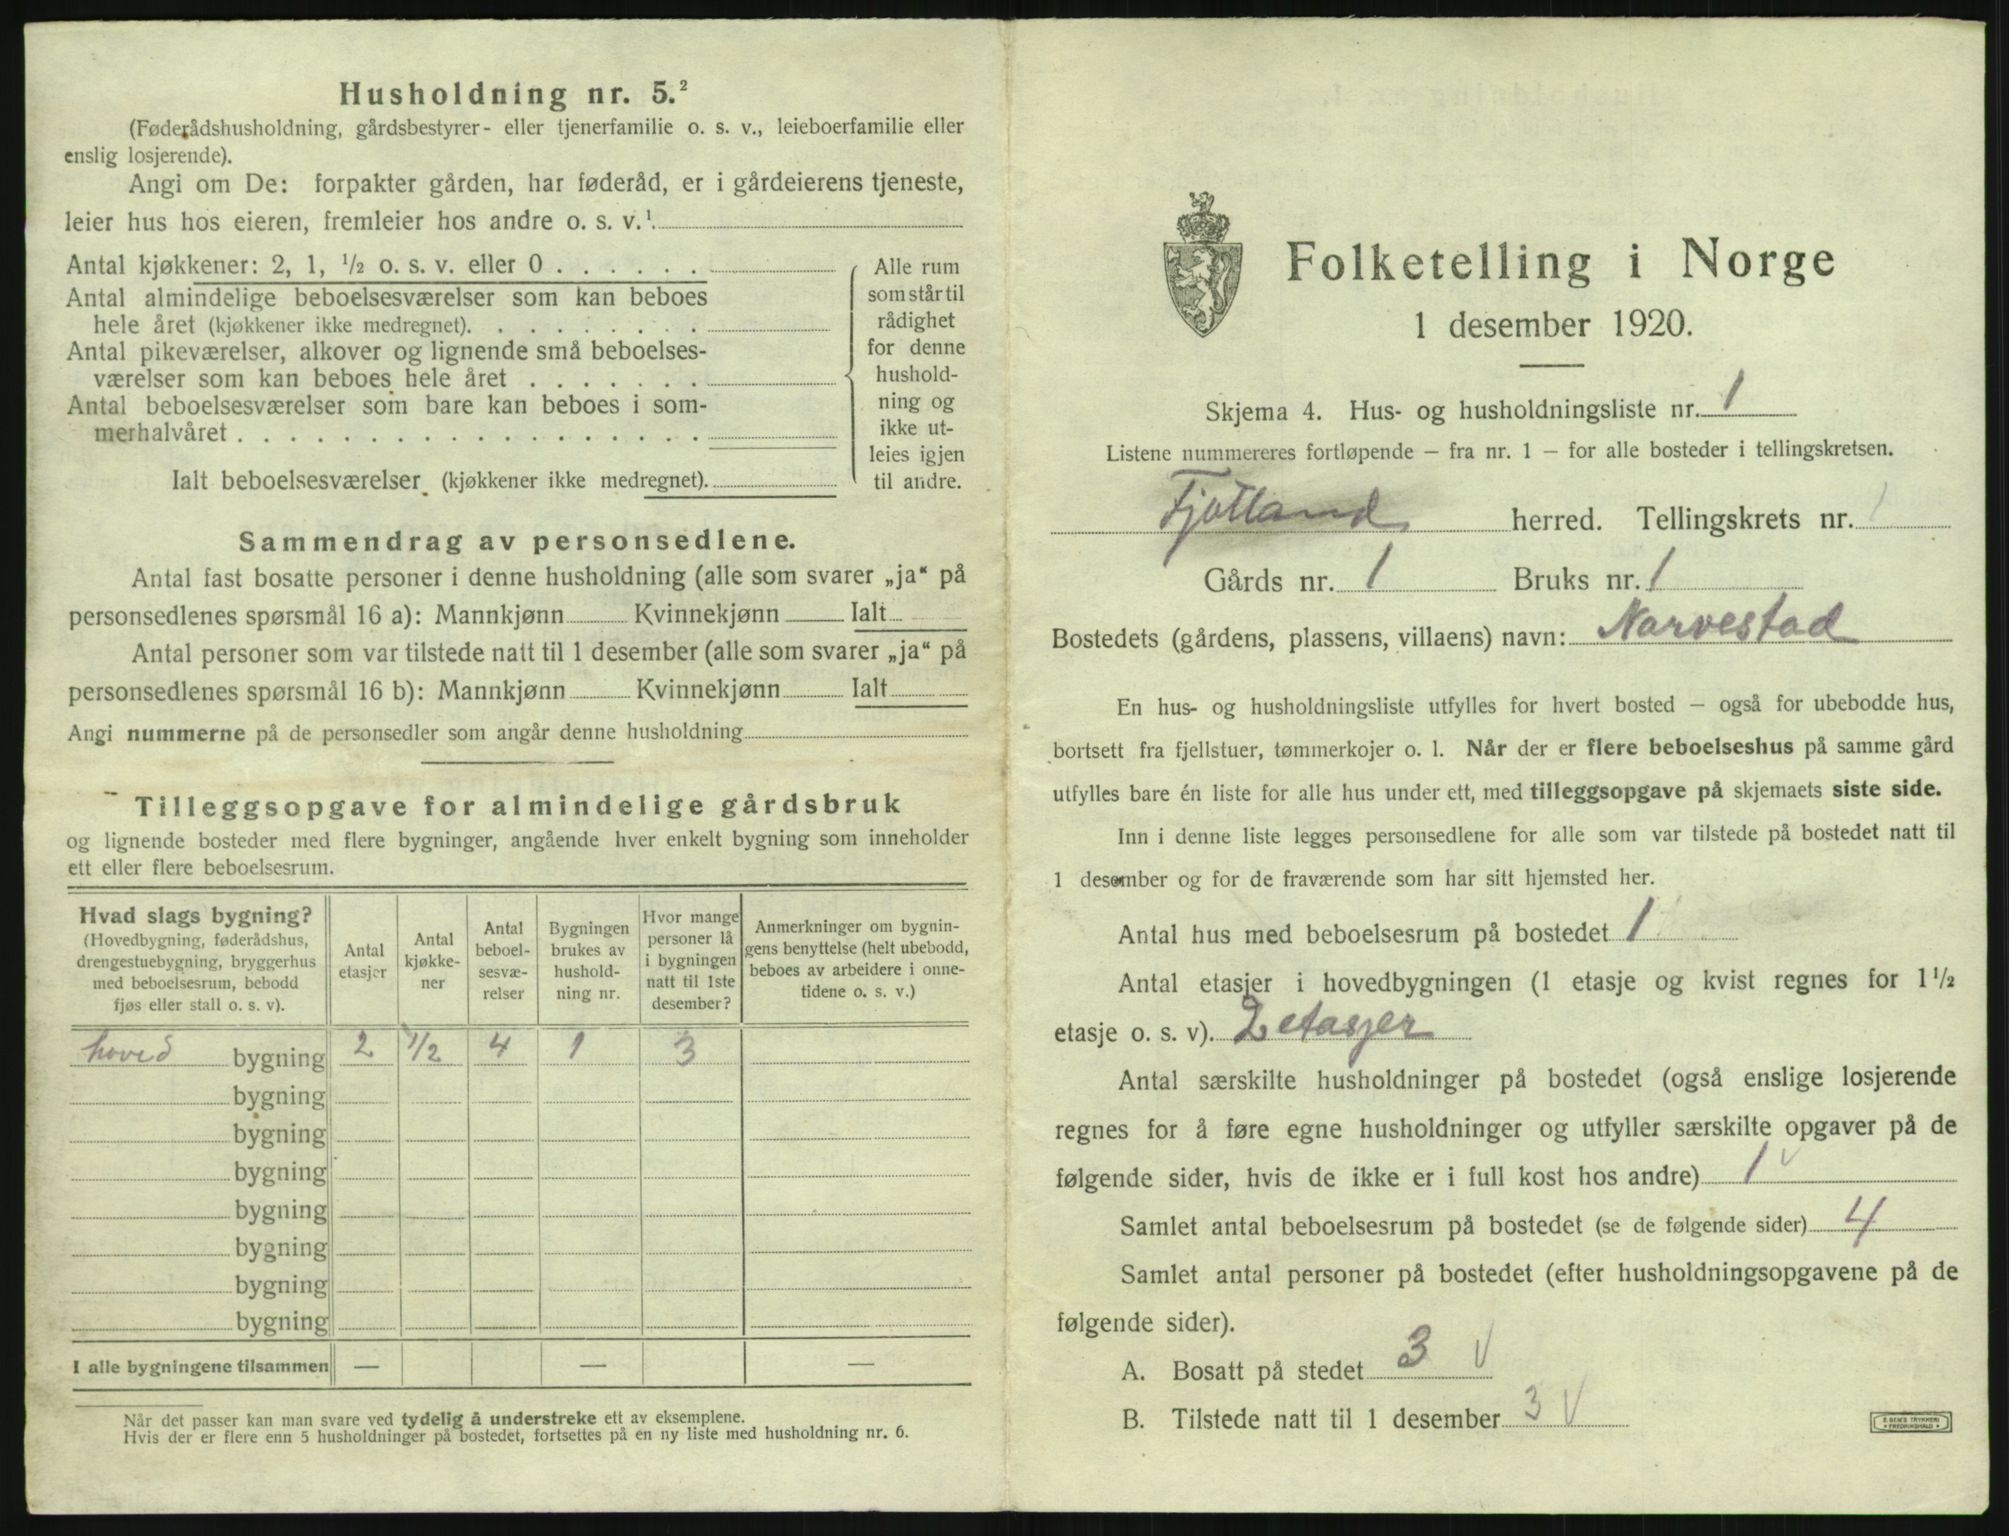 Husholdning nr. 5.²
(Føderådshusholdning, gårdsbestyrer- eller tjenerfamilie o. s. v., leieboerfamilie eller
enslig losjerende).
Angi om De: forpakter gården, har føderåd, er i gårdeierens tjeneste,
leier hus hos eieren, fremleier hos andre o. s. v.¹
Antal kjøkkener: 2, 1, ½ o. s. v. eller 0
Antal almindelige beboelsesværelser som kan beboes
hele året (kjøkkener ikke medregnet).
Antal pikeværelser, alkover og lignende små beboelses-
værelser som kan beboes hele året
Antal beboelsesværelser som bare kan beboes i som-
merhalvåret
Ialt beboelsesværelser (kjøkkener ikke medregnet).
Alle rum
som står til
rådighet
for denne
hushold-
ning og
ikke ut-
leies igjen
til andre.
Sammendrag av personsedlene.
Antal fast bosatte personer i denne husholdning (alle som svarer „ja“ på
personsedlenes spørsmål 16 a): Mannkjønn Kvinnekjønn Ialt
Antal personer som var tilstede natt til 1 desember (alle som svarer „ja“ på
personsedlenes spørsmål 16 b): Mannkjønn Kvinnekjønn Ialt
Angi nummerne på de personsedler som angår denne husholdning
Tilleggsopgave for almindelige gårdsbruk
og lignende bosteder med flere bygninger, angående hver enkelt bygning som inneholder
ett eller flere beboelsesrum.
Hvad slags bygning?
(Hovedbygning, føderådshus,
drengestuebygning, bryggerhus
med beboelsesrum, bebodd
fjøs eller stall o. s. v).
Antal
etasjer
Antal
kjøkke-
ner
Antal
beboel-
sesvæ-
relser
Bygningen
brukes av
hushold-
ning nr.
Hvor mange
personer lå
i bygningen
natt til 1ste
desember?
Anmerkninger om bygnin-
gens benyttelse (helt ubebodd,
beboes av arbeidere i onne-
tidene o. s. v.)
hoved bygning 2 1/2 4 1 3
bygning
bygning
bygning
bygning
bygning
bygning
bygning
I alle bygningene tilsammen — — —
Når det passer kan man svare ved tydelig å understreke ett av eksemplene.
Hvis der er flere enn 5 husholdninger på bostedet, fortsettes på en ny liste med husholdning nr. 6.
Folketelling i Norge
1 desember 1920.
Skjema 4. Hus- og husholdningsliste nr. 1
Listene nummereres fortløpende — fra nr. 1 — for alle bosteder i tellingskretsen.
Fjotland herred. Tellingskrets nr. 1
Gårds nr. 1 Bruks nr. 1
Bostedets (gårdens, plassens, villaens) navn: Narvestad
En hus- og husholdningsliste utfylles for hvert bosted — også for ubebodde hus,
bortsett fra fjellstuer, tømmerkojer o. l. Når der er flere beboelseshus på samme gård
utfylles bare én liste for alle hus under ett, med tilleggsopgave på skjemaets siste side.
Inn i denne liste legges personsedlene for alle som var tilstede på bostedet natt til
1 desember og for de fraværende som har sitt hjemsted her.
Antal hus med beboelsesrum på bostedet 1
Antal etasjer i hovedbygningen (1 etasje og kvist regnes for 1½
etasje o. s. v). 2 etasjer
Antal særskilte husholdninger på bostedet (også enslige losjerende
regnes for å føre egne husholdninger og utfyller særskilte opgaver på de
følgende sider, hvis de ikke er i full kost hos andre) 1 v
Samlet antal beboelsesrum på bostedet (se de følgende sider) 4
Samlet antal personer på bostedet (efter husholdningsopgavene på de
følgende sider).
A. Bosatt på stedet 3 V
B. Tilstede natt til 1 desember 3 V
E. SEM'S TRYKKERI
FREDRIKSHALD